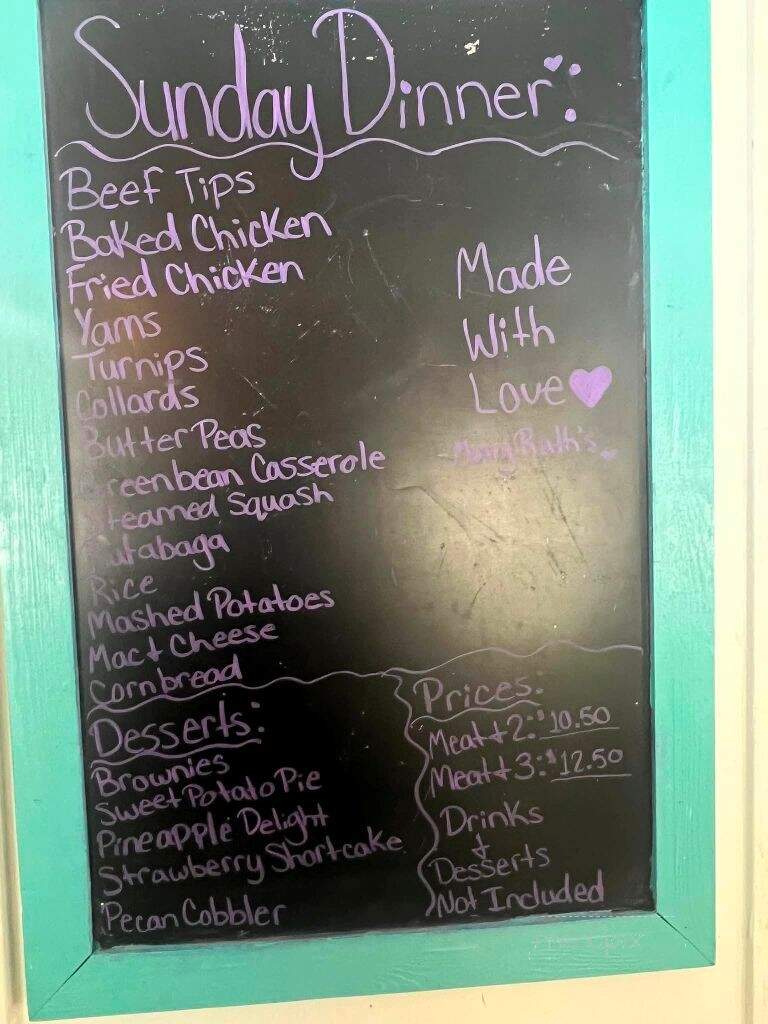 Sunday Dinner:
Beef Tips
Baked Chicken
Fried Chicken
Yams
Turnips
Collards
Butter Peas
Greenbean Casserole
Steamed Squash
Rutabaga
Rice
Mashed Potatoes
Mac + Cheese
Cornbread
Made
With
Love
Desserts:
Brownies
Sweet Potato Pie
Pineapple Delight
Strawberry Shortcake
Pecan Cobbler
Prices:
Meat + 2: $10.50
Meat + 3: $12.50
Drinks
+
Desserts
Not Included